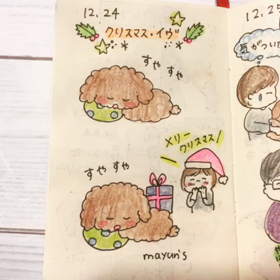 12,24
クリスマス・イヴ
すや すや
メリー
クリスマス
すや すや
mayun's
12,25
気がついた